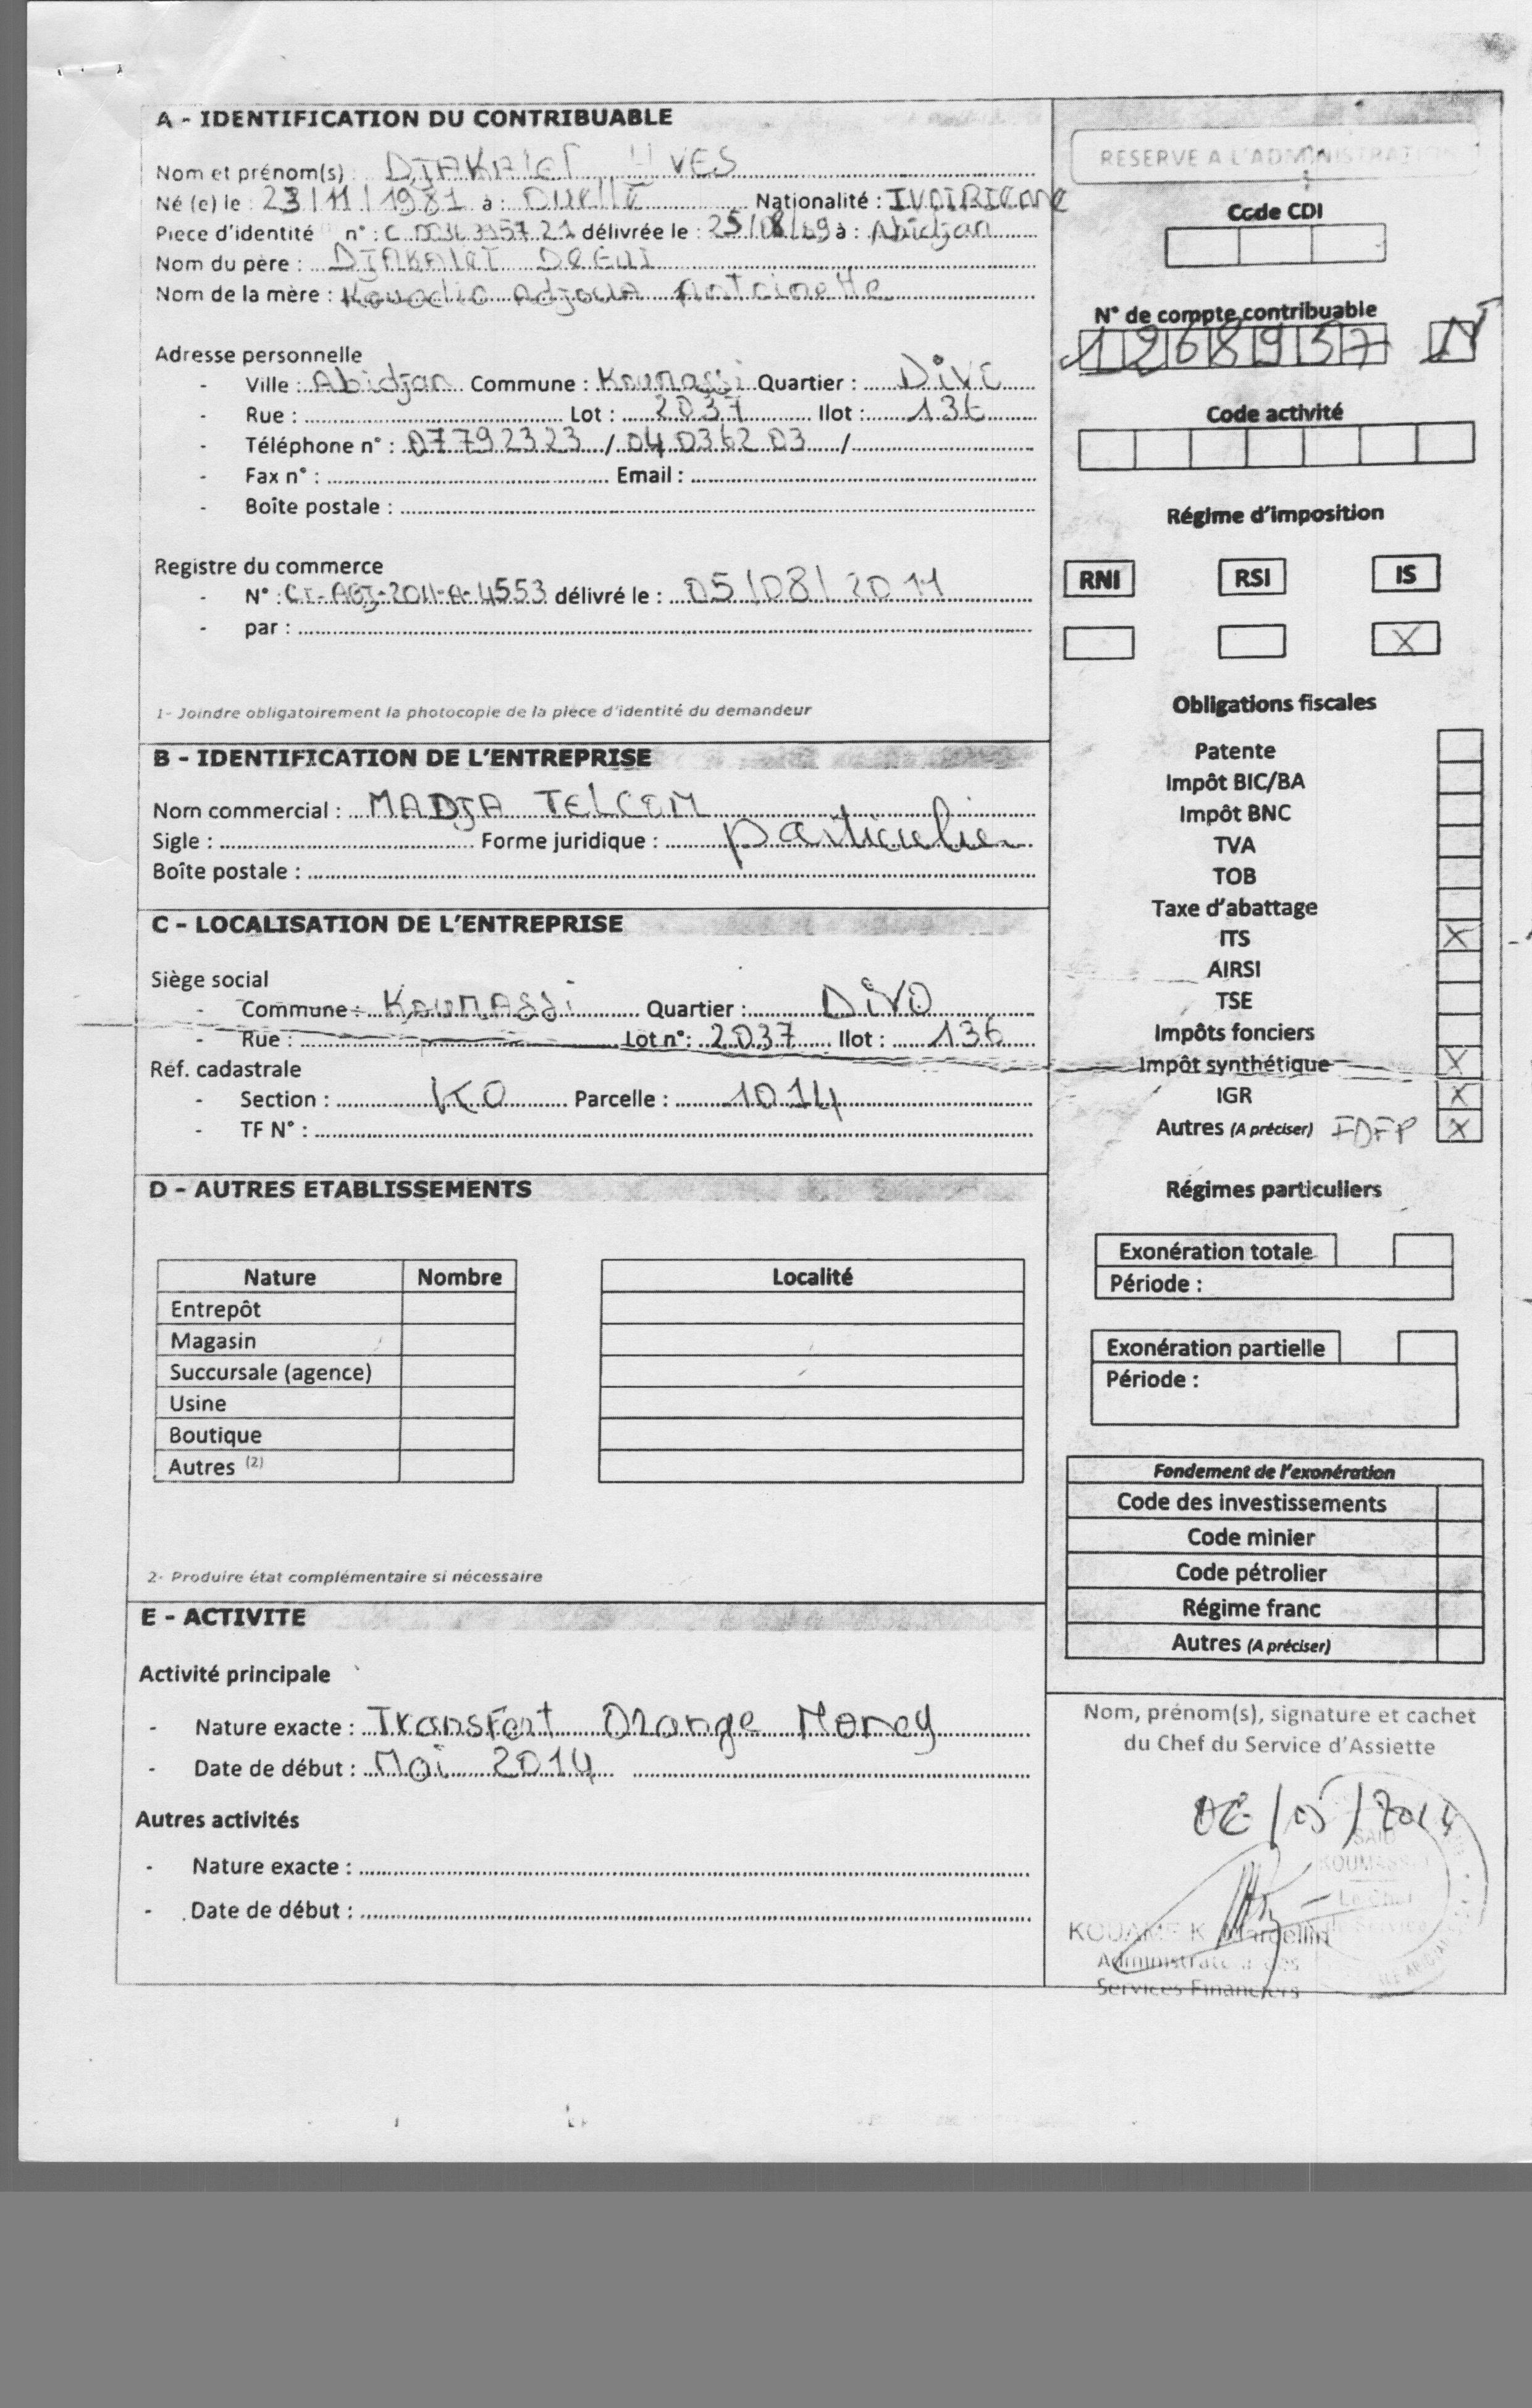 A - IDENTIFICATION DU CONTRIBUABLE
Nom et prénom(s) : YVES
Né (e) le : 23/11/1981 à : Nationalité : IVOIRIENNE
Pièce d'identité n° : délivrée le : à : Abidjan
Nom du père :
Nom de la mère : Kouadio Adjoua Antoinette
Adresse personnelle
- Ville : Abidjan Commune : Koumassi Quartier :
- Rue : Lot : 2037 Ilot : 136
- Téléphone n° : 07792323 / 04036203 /
- Fax n° : Email :
- Boîte postale :
Registre du commerce
- N° : délivré le : 05/08/2011
- par :
1- Joindre obligatoirement la photocopie de la pièce d'identité du demandeur
B - IDENTIFICATION DE L'ENTREPRISE
Nom commercial : MADJA TELCOM
Sigle : Forme juridique : particulier
Boîte postale :
C - LOCALISATION DE L'ENTREPRISE
Siège social
- Commune : KOUMASSI Quartier : DIVO
- Rue : Lot n° : 2037 Ilot : 136
Réf. cadastrale
- Section : KO Parcelle : 1014
- TF N° :
D - AUTRES ETABLISSEMENTS
Nature Nombre Localité
Entrepôt
Magasin
Succursale (agence)
Usine
Boutique
Autres (2)
2- Produire état complémentaire si nécessaire
E - ACTIVITE
Activité principale
- Nature exacte : Transfert Orange Money
- Date de début : Mai 2014
Autres activités
- Nature exacte :
- Date de début :
RESERVE A L'ADMINISTRATION
Code CDI
N° de compte contribuable
1268957 N
Code activité
Régime d'imposition
RNI RSI IS
X
Obligations fiscales
Patente
Impôt BIC/BA
Impôt BNC
TVA
TOB
Taxe d'abattage
ITS X
AIRSI
TSE
Impôts fonciers
Impôt synthétique X
IGR X
Autres (A préciser) FDFP X
Régimes particuliers
Exonération totale
Période :
Exonération partielle
Période :
Fondement de l'exonération
Code des investissements
Code minier
Code pétrolier
Régime franc
Autres (A préciser)
Nom, prénom(s), signature et cachet
du Chef du Service d'Assiette
KOUAME K. Marcellin
Administrateur des
Services Financiers